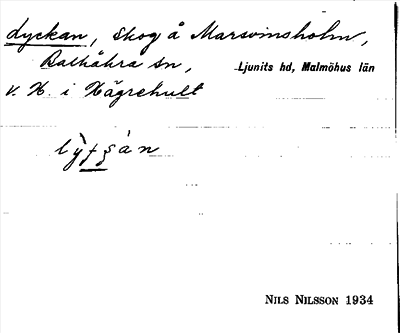 dyckan, skog å Marsvinsholm,
Balkåkra sn, Ljunits hd, Malmöhus län
v. H. i Hägrehult
Nils Nilsson 1934